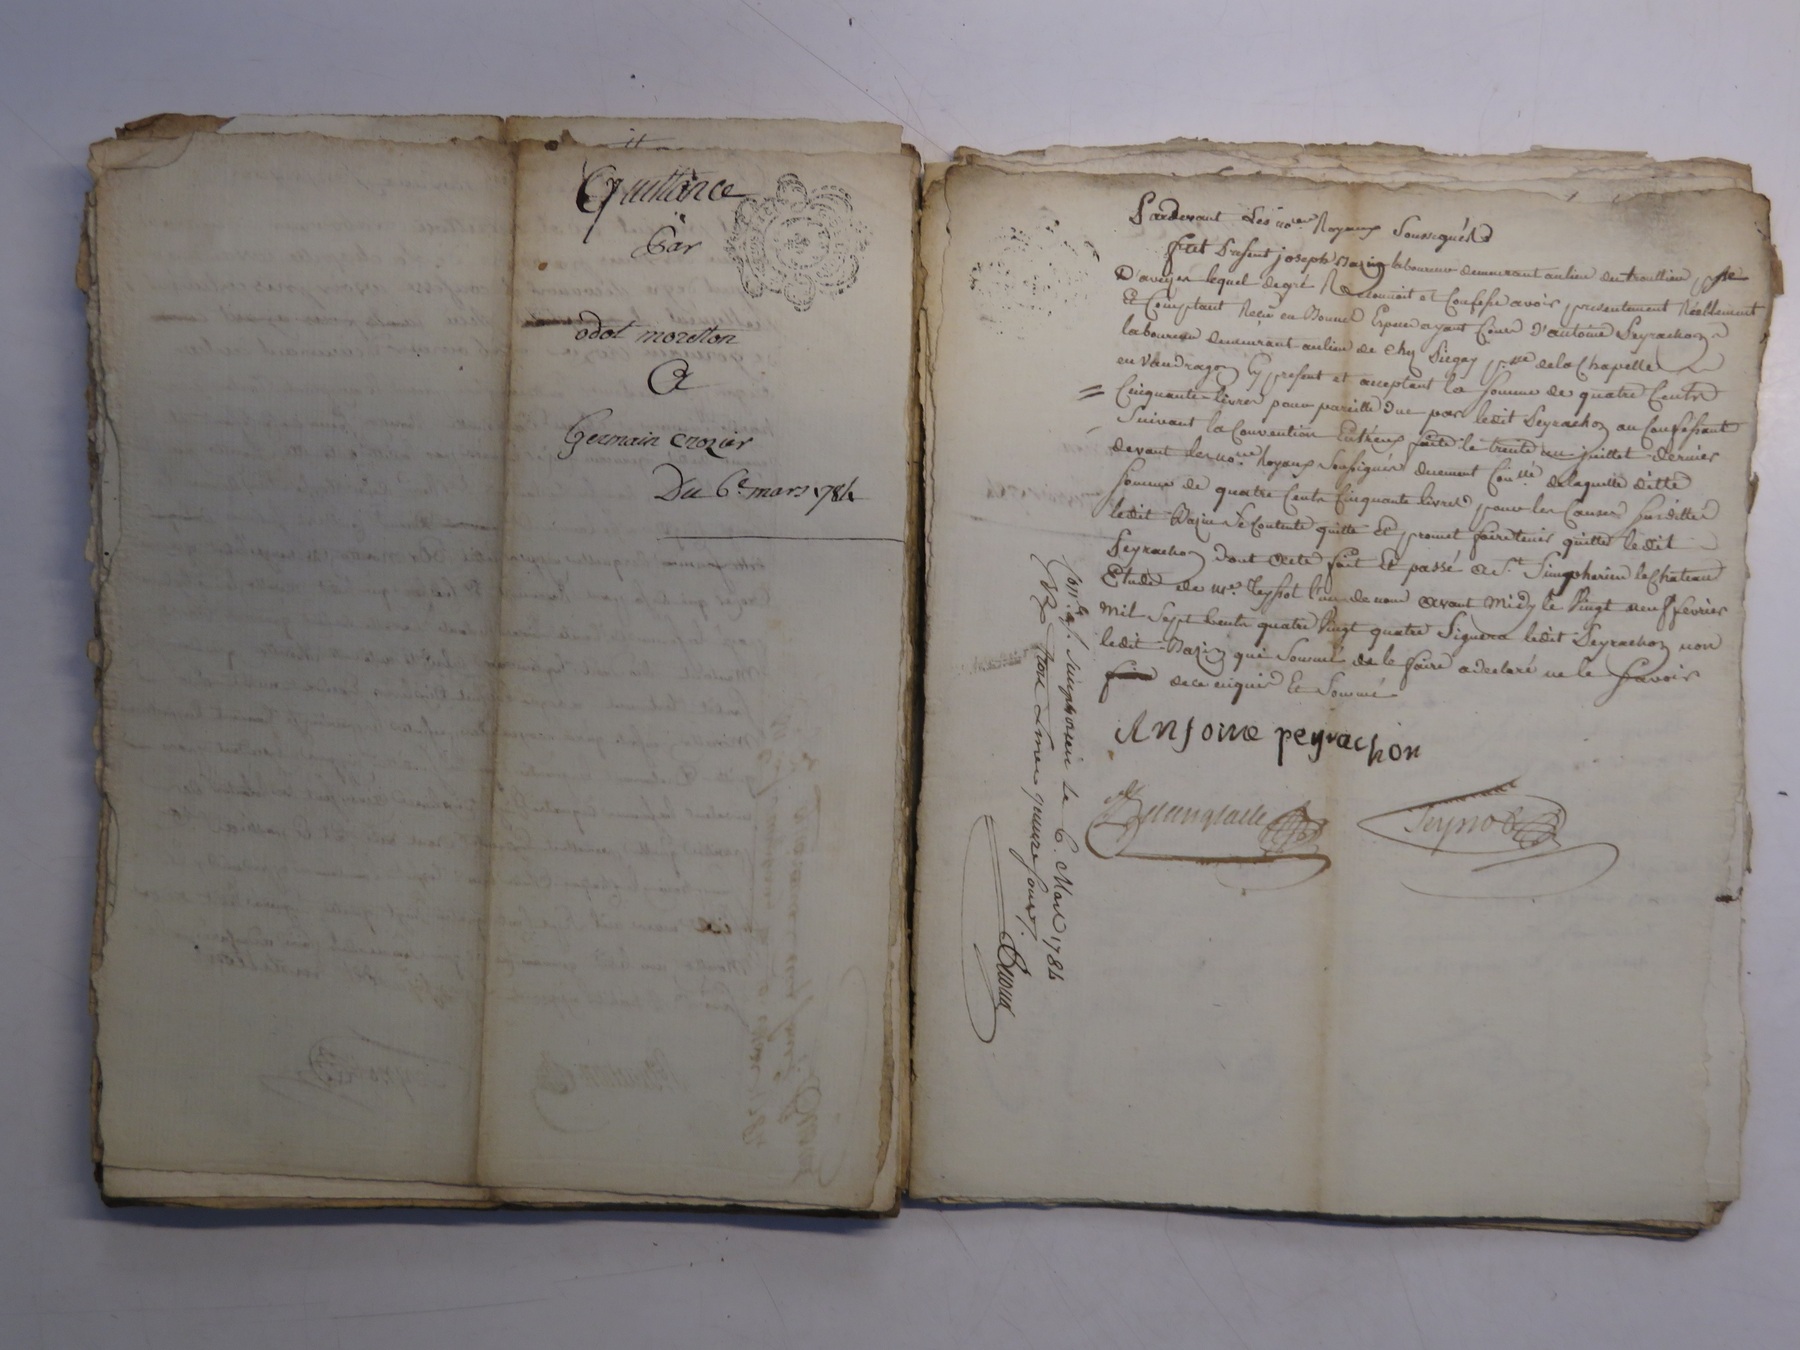 Quittance
Par
odot moretton
A
Germain crozier
Du 6e. mars 1784
Pardevant Les nores. Royaux soussignés
fut présent joseph Bazin laboureur demeurant au lieu de trouillien psse
D'aveyse lequel de gré Reconnoit et Confesse avoir presentement Reellement
Et Comptant Reçu en Bonnes Especes ayant Cours D'antoine Peyrachon
laboureur demeurant au lieu de Chez psse de la Chapelle
en Vaudragon Cy present et acceptant la somme de quatre Cents
Cinquante livres pour pareille due par ledit Peyrachon au Confessant
Suivant la Convention Entreux faite le trente un juillet dernier
devant les nores Royaux Soussignés duement Conllé de laquelle ditte
Somme de quatre Cents Cinquante livres pour les Causes susdittes
ledit Bazin se Contente quitte Et promet faire tenir quitte ledit
Peyrachon dont acte fait Et passé a St. Simphorien le Chateau
Etude de me. Teyssot l'un de nous avant midy le Vingt neuf fevrier
mil Sept Cents quatre Vingt quatre Signera ledit Peyrachon non
ledit Bazin qui Sommé de le faire a declaré ne le sçavoir
de ce enquis Et Sommé
Antoine peyrachon
Conllé. a St. Simphorien le 6. Mars 1784